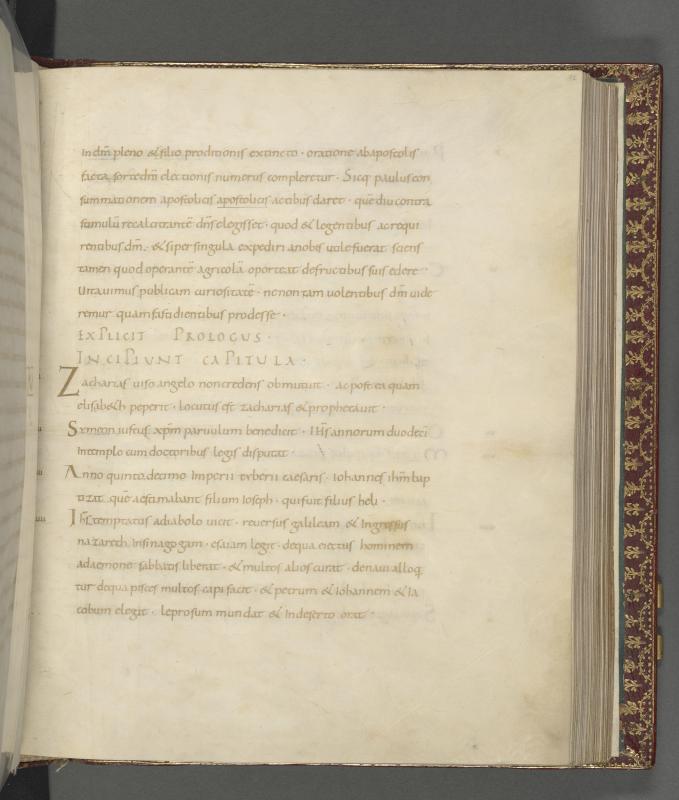 In dm̄ pleno & filio proditionis extincto · oratione ab apostolis
facta sorte dn̄i electionis numerus compleretur · Sicq paulus con
summationem apostolicis apostolicis actibus daret · quē diu contra
stimulū recalcitrantē dn̄s elegisset · quod & legentibus ac requi
rentibus dm̄ · & si per singula expediri a nobis utile fuerat sciens
tamen quod operantē agricolā oporteat de fructibus suis edere
Uitauimus publicam curiositatē · ne non tam uolentibus dm̄ uide
remur quam fastidientibus prodesse ·
EXPLICIT PROLOGUS ·
INCIPIUNT CAPITULA ·
Zacharias uiso angelo non credens obmutuit · ac postea quam
elisab&h peperit · locutus est zacharias & proph&auit ·
Symeon iustus xpm̄ paruulum benedicit · Ihs̄ annorum duodeci
In templo cum doctoribus legis disputat ·
Anno quinto decimo Imperii tyberii caesaris · Iohannes ihm̄ bap
tizat quē aestimabant filium Ioseph · qui fuit filius heli ·
Ihs̄ temptatus a diabolo uicit · reuersus galileam & Ingressus
nazareth In sinagogam · esaiam legit · de qua eiectus hominem
a daemone sabbatis liberat · & multos alios curat · de naui alloq
tur de qua pisces multos capi facit · & petrum & Iohannem & Ia
cobum elegit · leprosum mundat & In deserto orat ·